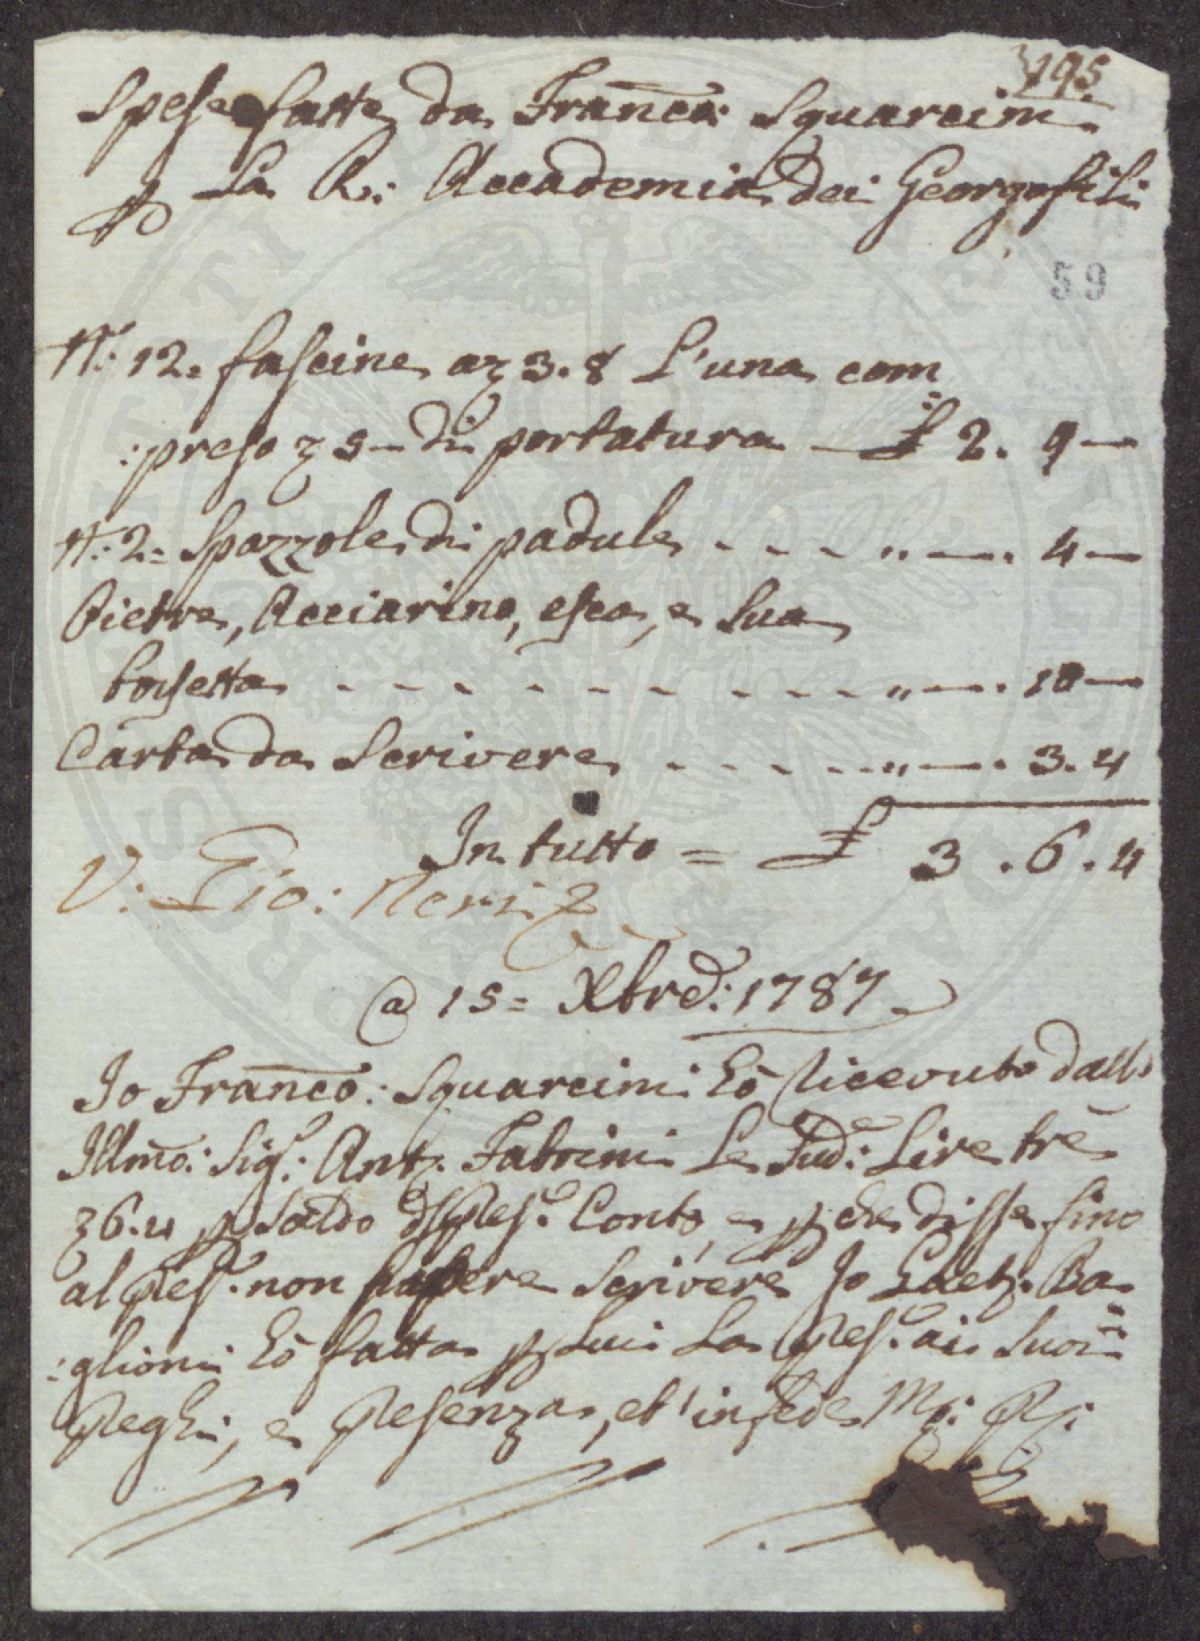 195
Spese fatte da Franco: Squarcini
p La R: Accademia dei Georgofili
59
N: 12= fascine a 3.8 L'una com
:preso 5 — di portatura — £ 2. 9 —
N: 2= Spazzole di padule - - - - " — . 4 —
Pietre, Acciarino, esca, e sua
borsetta - - - - - - - - - - - " — . 10 —
Carta da Scrivere - - - - - " — . 3. 4
In tutto = £ 3 . 6 . 4
V: Gio: Neri
@ 15= Xbre: 1787
Io Franco: Squarcini hò ricevuto dall
Illmo: Sig: Ant. Fabrini Le Sud: Lire trè
6.4 p Saldo del Pres: Conto, e p che disse fino
al Pres: non sapere scrivere Io Gaet: Ba
:glioni hò fatta p lui La Pres: ai suoi
Preghi, e Presenza, et in fede M: P: